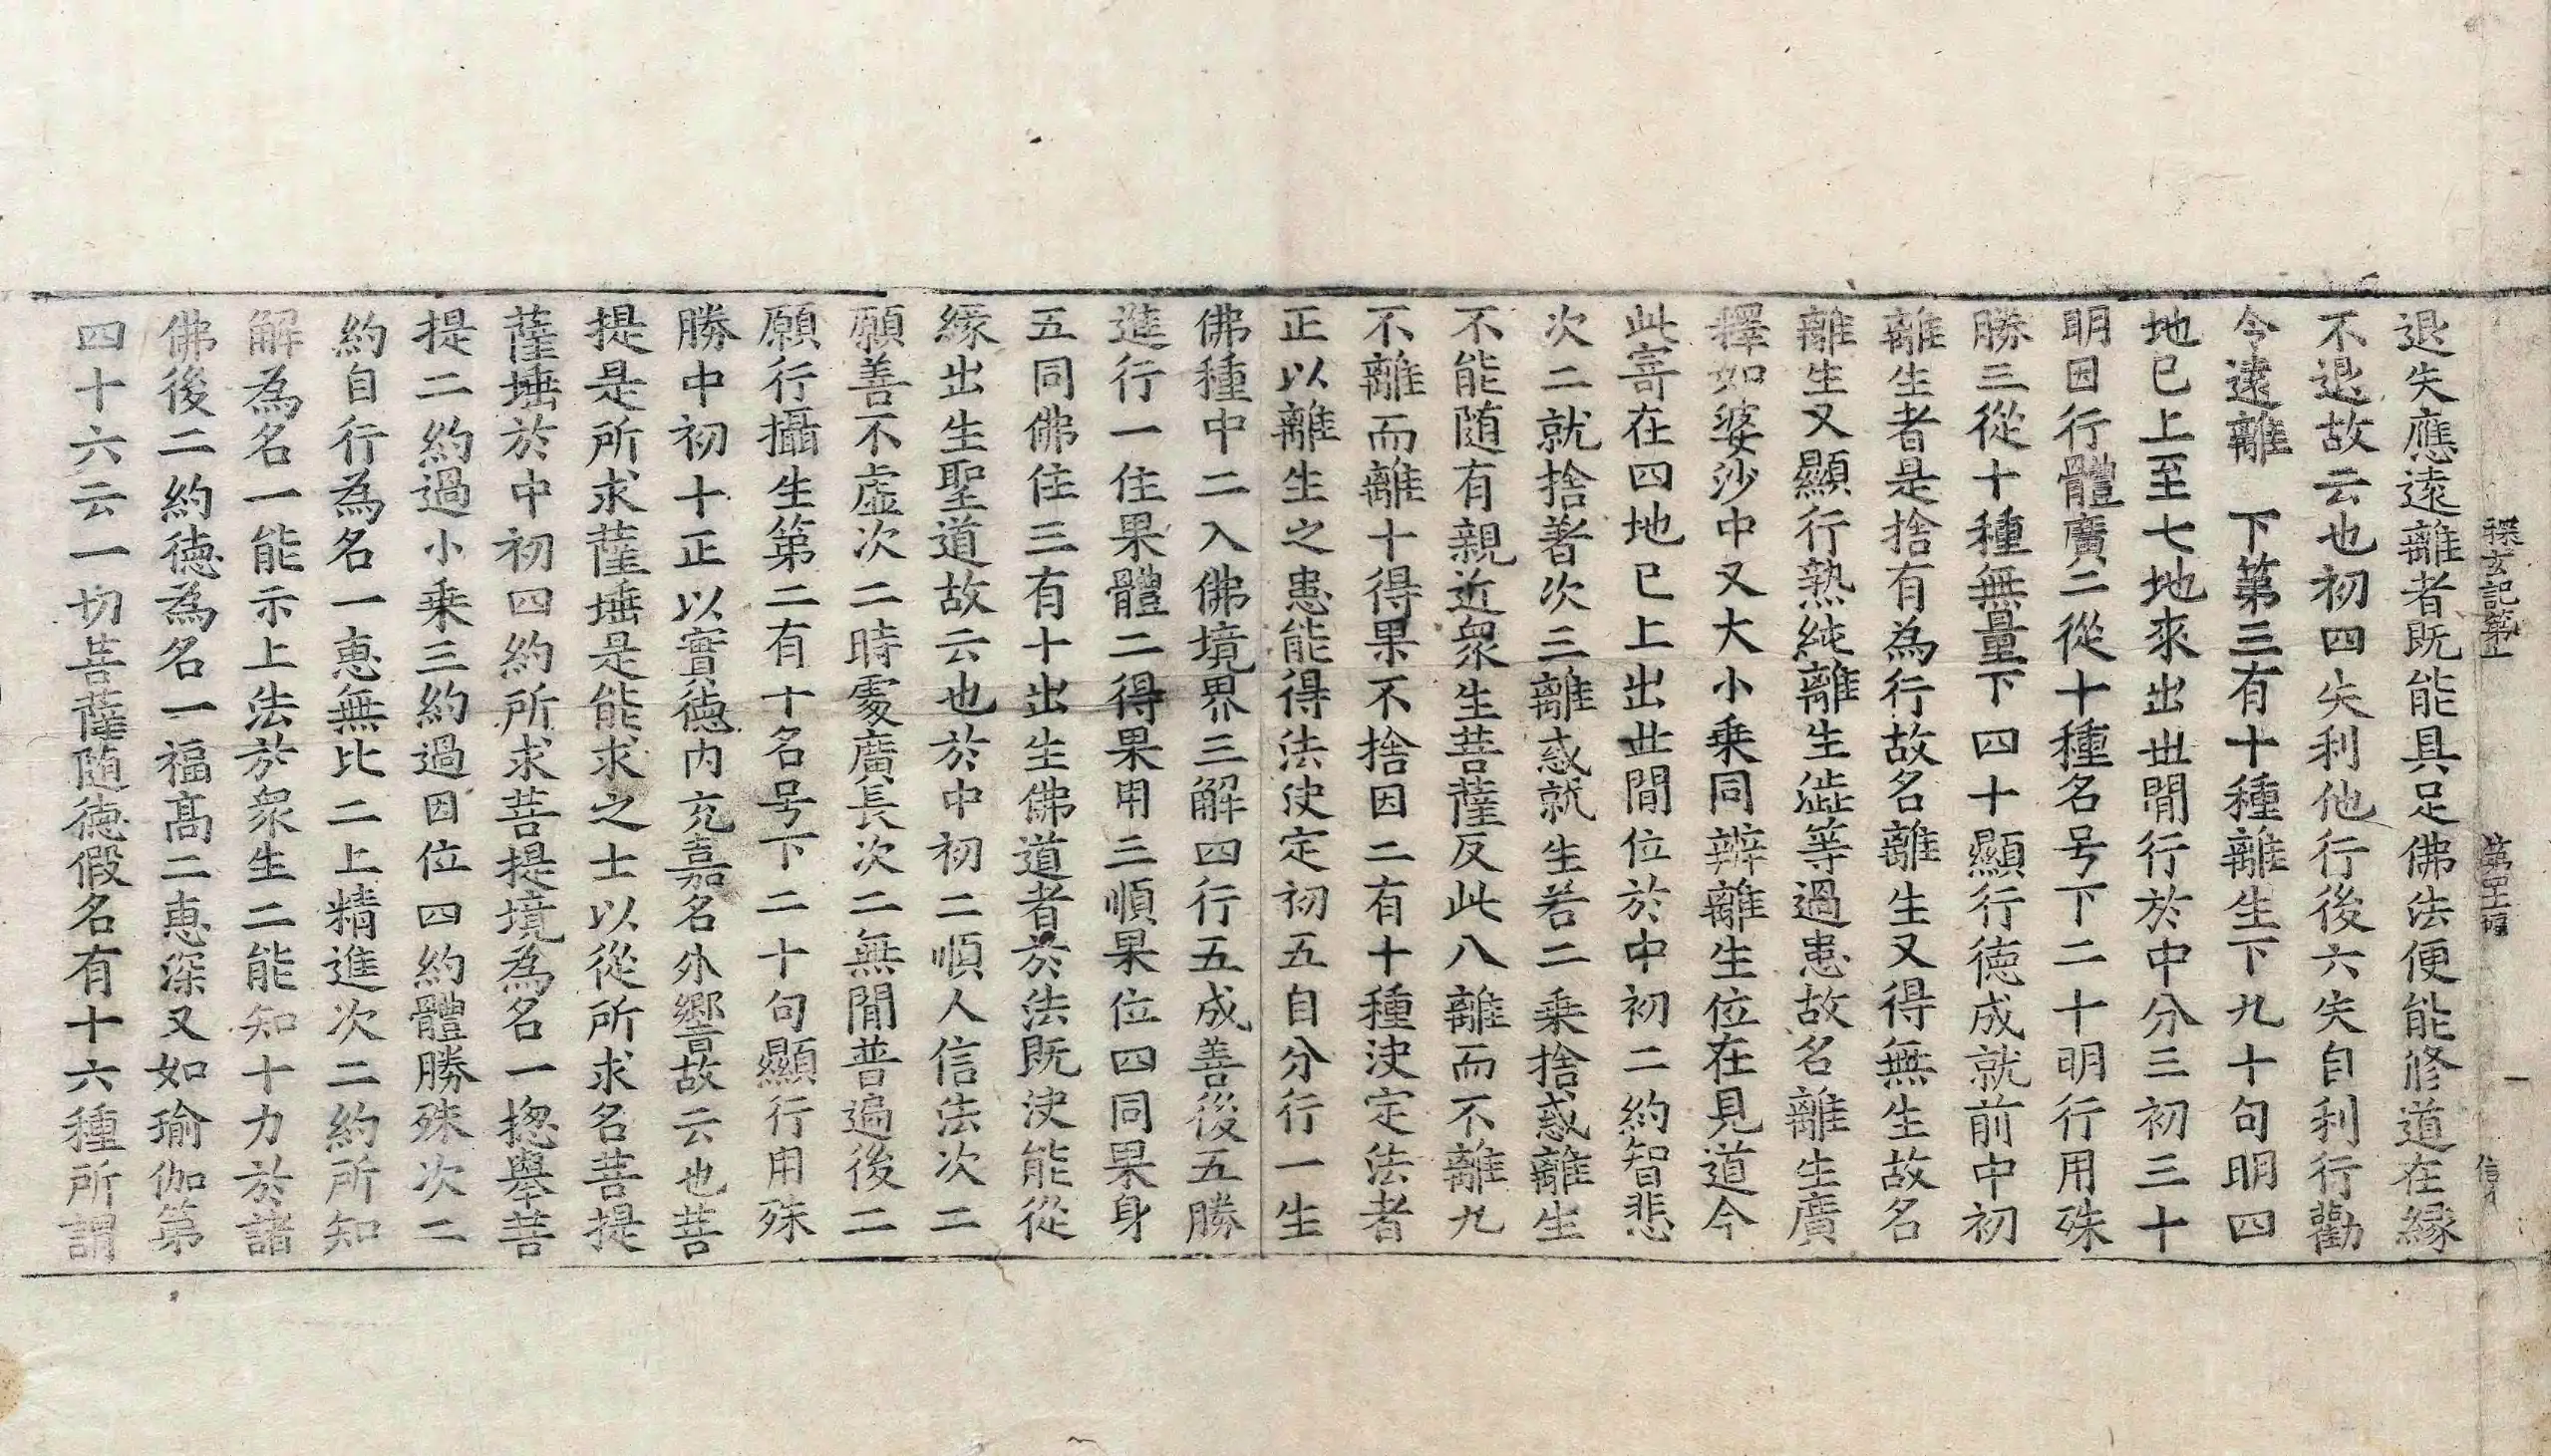 探玄記第 第 一
退失應遠離者既能具足佛法便能修道在緣
不退故云也初四失利他行後六失自利行勸
令遠離 下第三有十種離生下九十句明四
地已上至七地來出丗間行於中分三初三十
明因行體廣二從十種名号下二十明行用殊
勝三從十種無量下四十顯行德成就前中初
離生者是捨有為行故名離生又得無生故名
離生又顯行熟純離生澁等過患故名離生廣
擇如婆沙中又大小乗同辨離生位在見道今
此寄在四地已上出丗間位於中初二約智悲
次二就捨著次三離惑就生若二乗捨惑離生
不能随有親近衆生菩薩反此八離而不離九
不離而離十得果不捨因二有十種決定法者
正以離生之患能得法決定初五自分行一生
佛種中二入佛境界三解四行五成善後五勝
進行一住果體二得果用三順果位四同果身
五同佛住三有十出生佛道者於法既決能從
緣出生聖道故云也於中初二順人信法次二
願善不虛次二時處廣長次二無閒普遍後二
願行攝生第二有十名号下二十句顯行用殊
勝中初十正以實德内充嘉名外響故云也菩
提是所求薩埵是能求之士以從所求名菩提
薩埵於中初四約所求菩提境為名一揔舉菩
提二約過小乗三約過因位四約體勝殊次二
約自行為名一惠無比二上精進次二約所知
解為名一能示上法於衆生二能知十力於諸
佛後二約德為名一福髙二惠深又如瑜伽第
四十六云一切菩薩随德假名有十六種所謂